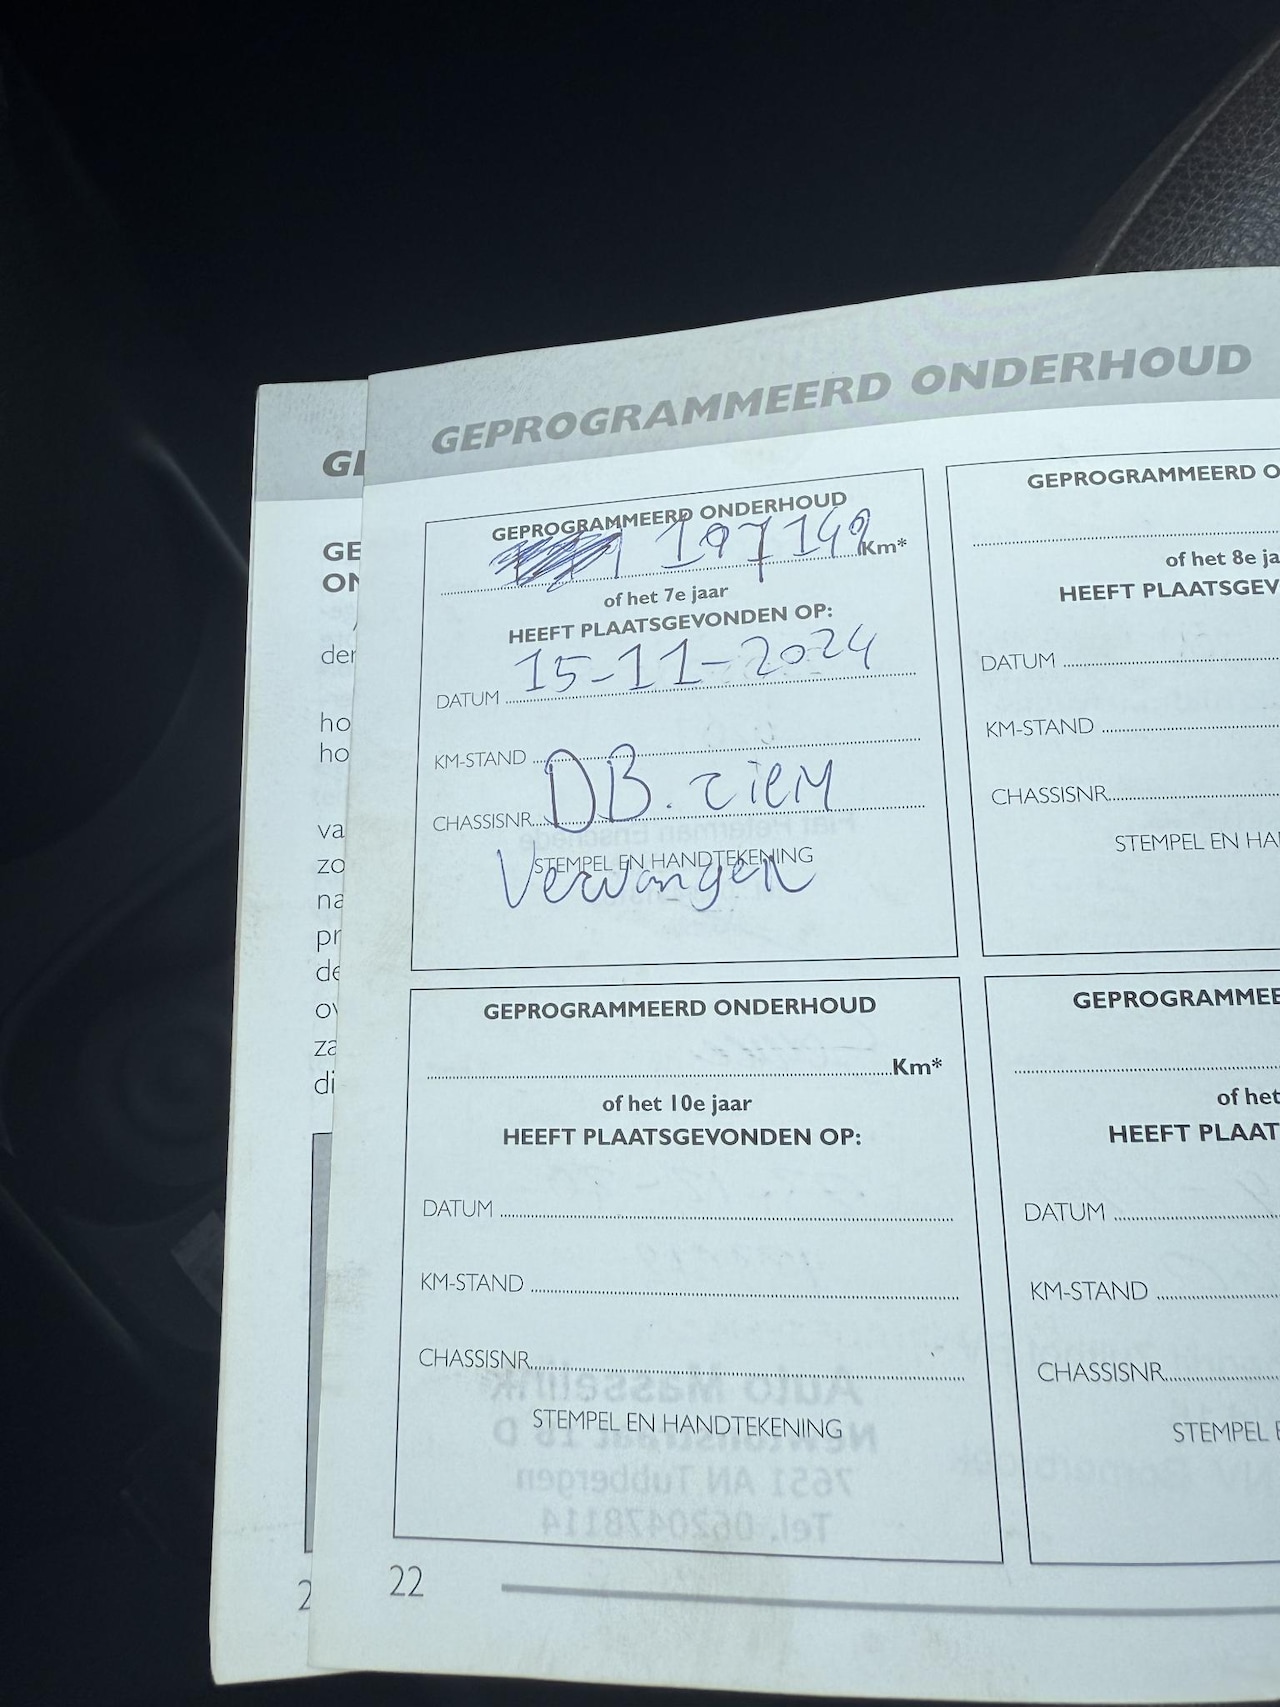 GEPROGRAMMEERD ONDERHOUD
GEPROGRAMMEERD ONDERHOUD
197149 Km*
of het 7e jaar
HEEFT PLAATSGEVONDEN OP:
DATUM 15-11-2024
KM-STAND
CHASSISNR. DB. riem
STEMPEL EN HANDTEKENING
Vervangen
GEPROGRAMMEERD O
of het 8e ja
HEEFT PLAATSGEV
DATUM
KM-STAND
CHASSISNR.
STEMPEL EN HA
GEPROGRAMMEERD ONDERHOUD
Km*
of het 10e jaar
HEEFT PLAATSGEVONDEN OP:
DATUM
KM-STAND
CHASSISNR.
STEMPEL EN HANDTEKENING
GEPROGRAMMEE
of het
HEEFT PLAAT
DATUM
KM-STAND
CHASSISNR.
STEMPEL E
22
GE
GE
ON
der
ho
ho
va
zo
na
pr
de
ov
za
di
2
Auto Masselink
Newtonstraat 18 D
7651 AN Tubbergen
Tel. 0620478114